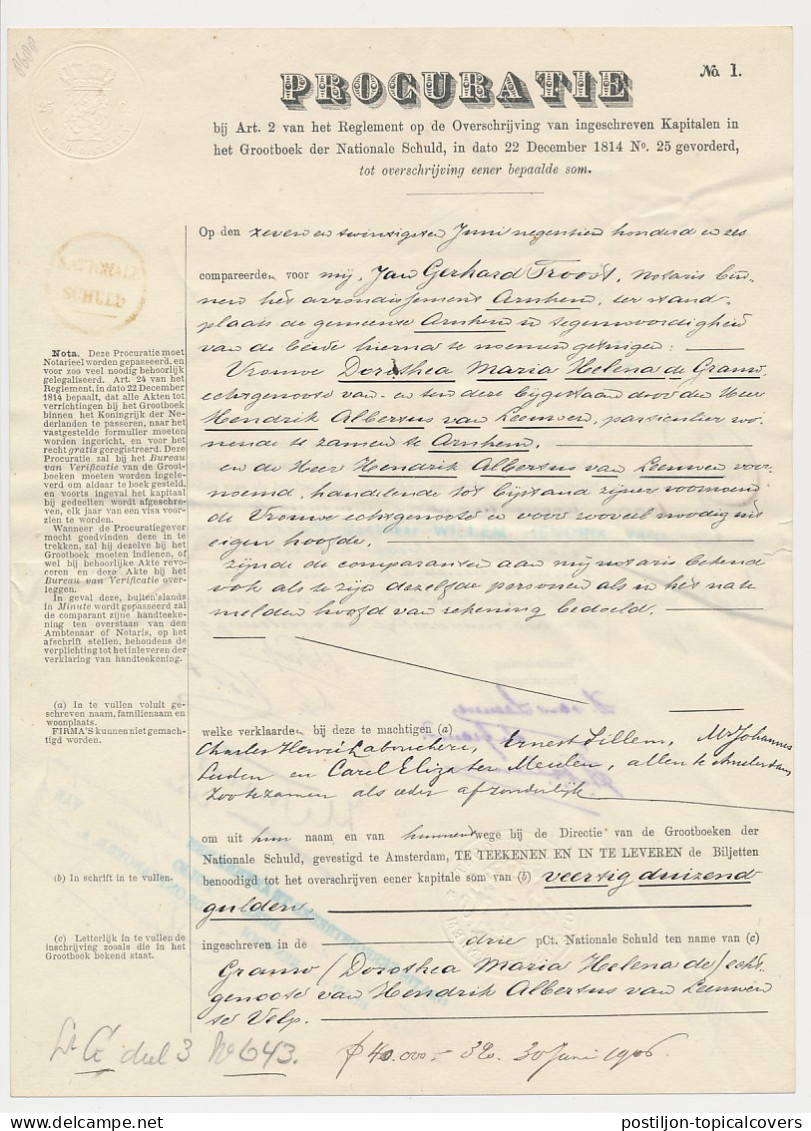 PROCURATIE
No. 1.
bij Art. 2 van het Reglement op de Overschrijving van ingeschreven Kapitalen in
het Grootboek der Nationale Schuld, in dato 22 December 1814 No. 25 gevorderd,
tot overschrijving eener bepaalde som.
NATIONALE
SCHULD
Op den zeven en twintigsten Juni negentien honderd en zes
compareerde voor mij, Jan Gerhard Troost, notaris bin-
nen het arrondissement Arnhem, ter stand-
plaats de gemeente Arnhem in tegenwoordigheid
van de beide hierna te noemen getuigen:
Vrouwe Dorothea Maria Helena de Graauw,
echtgenoote van en ten deze bijgestaan door den Heer
Hendrik Albertus van Leeuwen, particulier wo-
nende te zamen te Arnhem.
en de Heer Hendrik Albertus van Leeuwen voor-
noemd, handelende tot bijstand zijner voornoem-
de Vrouwe echtgenoote en voor zooveel noodig uit
eigen hoofde.
zijnde de comparanten aan mij notaris bekend
ook als te zijn dezelfde personen als in het na te
melden hoofd van rekening bedoeld.
Nota. Deze Procuratie moet
Notarieel worden gepasseerd, en
voor zoo veel noodig behoorlijk
gelegaliseerd. Art. 24 van het
Reglement, in dato 22 December
1814 bepaalt, dat alle Akten tot
verrichtingen bij het Grootboek
binnen het Koningrijk der Ne-
derlanden te passeren, naar het
vastgestelde formulier moeten
worden ingericht, en voor het
recht gratis geregistreerd. Deze
Procuratie zal bij het Bureau
van Verificatie van de Groot-
boeken moeten worden ingele-
verd om aldaar te boek gesteld,
en voorts ingeval het kapitaal
bij gedeelten wordt afgeschre-
ven, elk jaar van een visa voor-
zien te worden.
Wanneer de Procuratiegever
mocht goedvinden deze in te
trekken, zal hij dezelve bij het
Grootboek moeten indienen, of
wel bij behoorlijke Akte revo-
ceren en deze Akte bij het
Bureau van Verificatie over-
leggen.
In geval deze, buiten 'slands
in Minute wordt gepasseerd zal
de comparant zijne handteeke-
ning ten overstaan van den
Ambtenaar of Notaris, op het
afschrift stellen, behoudens de
verplichting tot het inleveren der
verklaring van handteekening.
(a) In te vullen voluit ge-
schreven naam, familienaam en
woonplaats.
FIRMA'S kunnen niet gemach-
tigd worden.
welke verklaarden bij deze te machtigen (a)
Charles Henri Labouchere, Ernest Sillem, Mr Johannes
Luden en Carel Eliza ter Meulen, allen te Amsterdam
zoo te zamen als ieder afzonderlijk
om uit hun naam en van hunnentwege bij de Directie van de Grootboeken der
Nationale Schuld, gevestigd te Amsterdam, TE TEEKENEN EN IN TE LEVEREN de Biljetten
benoodigd tot het overschrijven eener kapitale som van (b) veertig duizend
gulden,
(b) In schrift in te vullen.
(c) Letterlijk in te vullen de
inschrijving zooals die in het
Grootboek bekend staat.
ingeschreven in de drie pCt. Nationale Schuld ten name van (c)
Graauw (Dorothea Maria Helena de) echt-
genoote van Hendrik Albertus van Leeuwen
te Velp.
deel 3 No 643.
ƒ 40.000,- 3% 30 Juni 1906
postiljon-topicalcovers